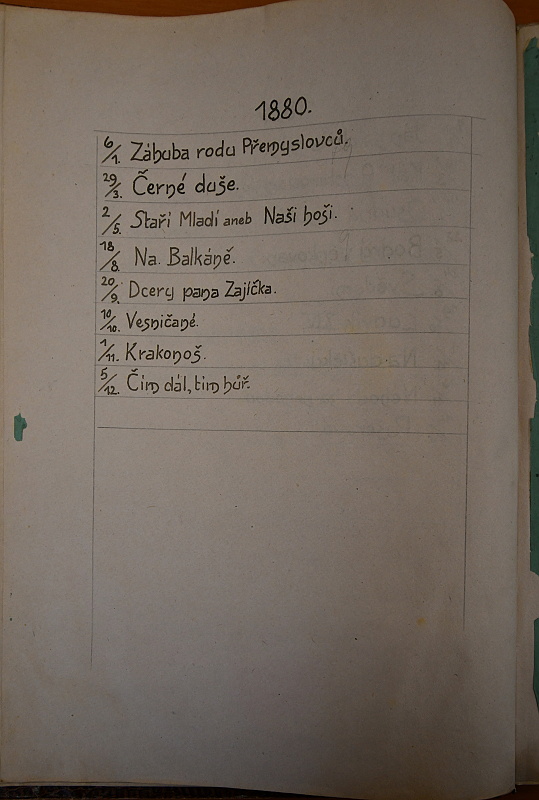 1880.
6/1. Záhuba rodu Přemyslovců.
29/3. Černé duše.
2/5. Staří Mladí aneb Naši hoši.
18/8. Na Balkáně.
20/9. Dcery pana Zajíčka.
10/10. Vesničané.
1/11. Krakonoš.
5/12. Čím dál, tím hůř.